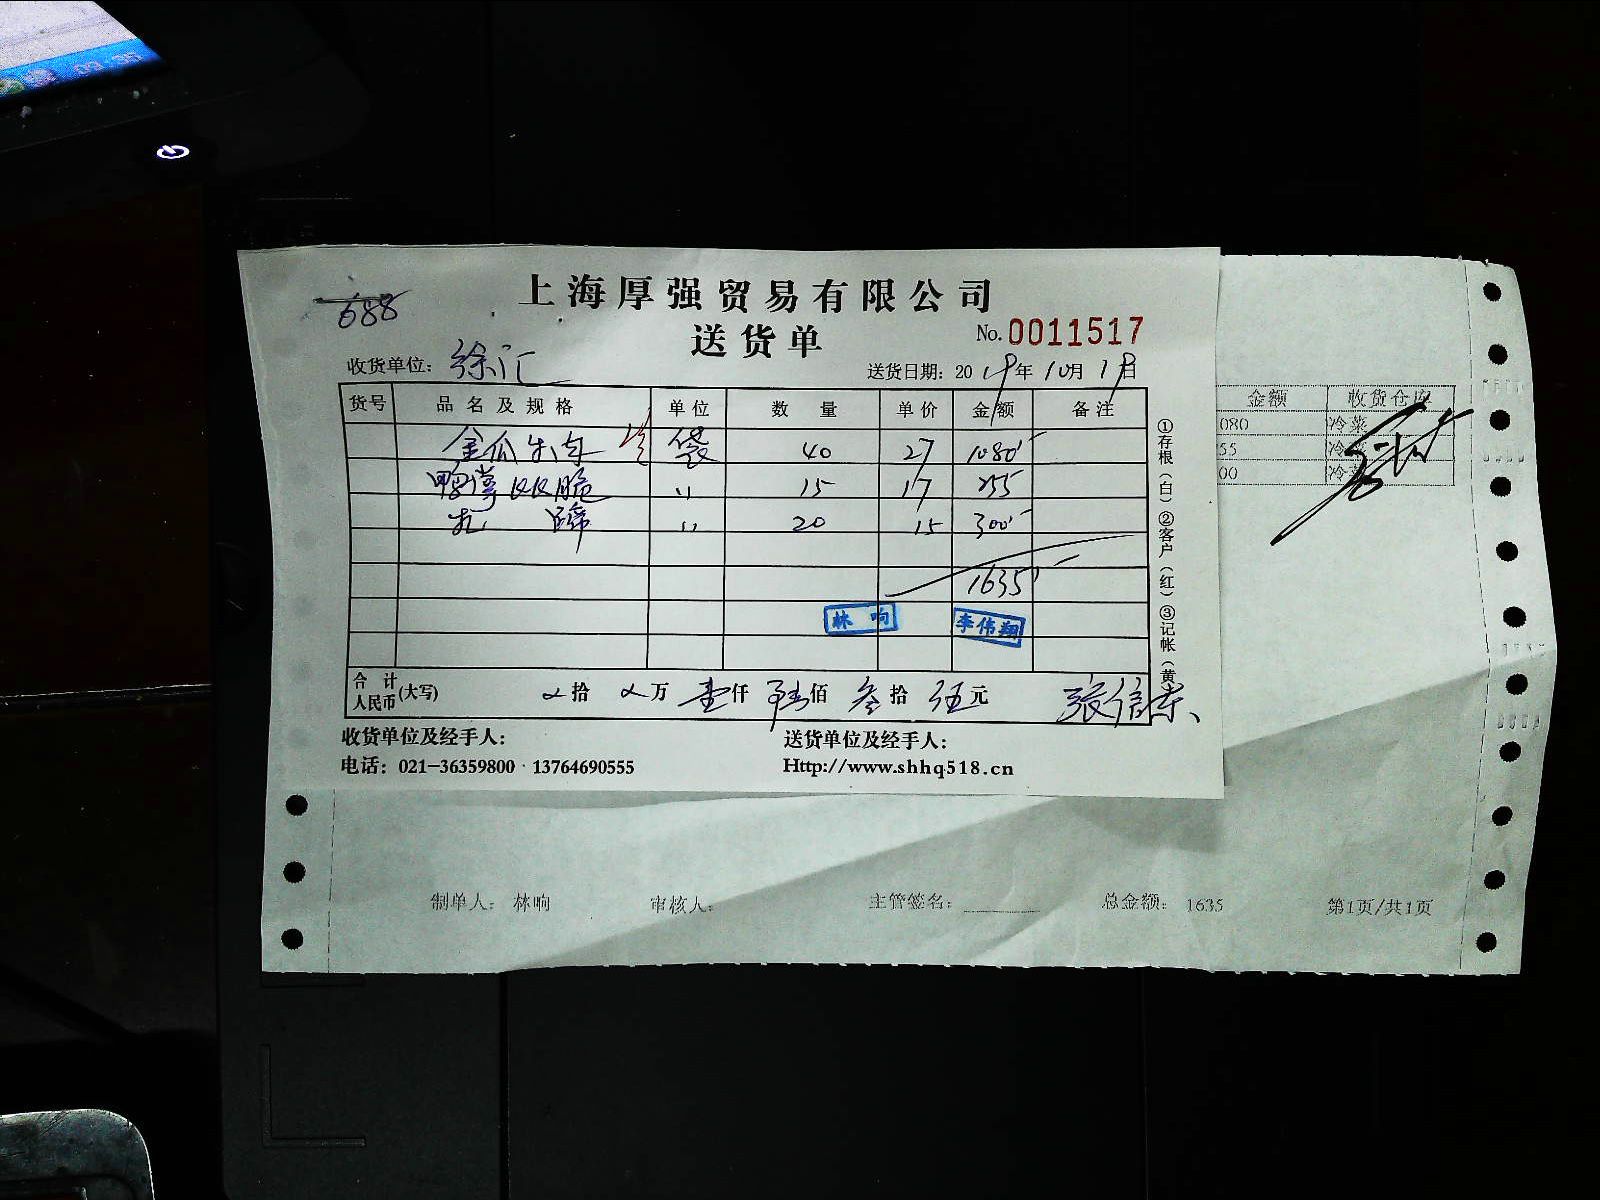 03:37
688
上海厚强贸易有限公司
送货单
No. 0011517
收货单位: 徐汇
送货日期: 2019年10月19日
货号 品名及规格 单位 数量 单价 金额 备注
金瓜牛肉 袋 40 27 1080
鸭掌 脆 〃 15 17 255
扎蹄 〃 20 15 300
1635
林响 李伟翔
合计人民币(大写) 拾 万 壹仟 陆佰 叁拾 伍元
张信东
收货单位及经手人:
送货单位及经手人:
电话: 021-36359800 13764690555
Http://www.shhq518.cn
①存根(白)②客户(红)③记帐(黄
金额 收货仓库
080 冷菜
55 冷
00 冷
制单人: 林响 审核人: 主管签名: 总金额: 1635 第1页/共1页